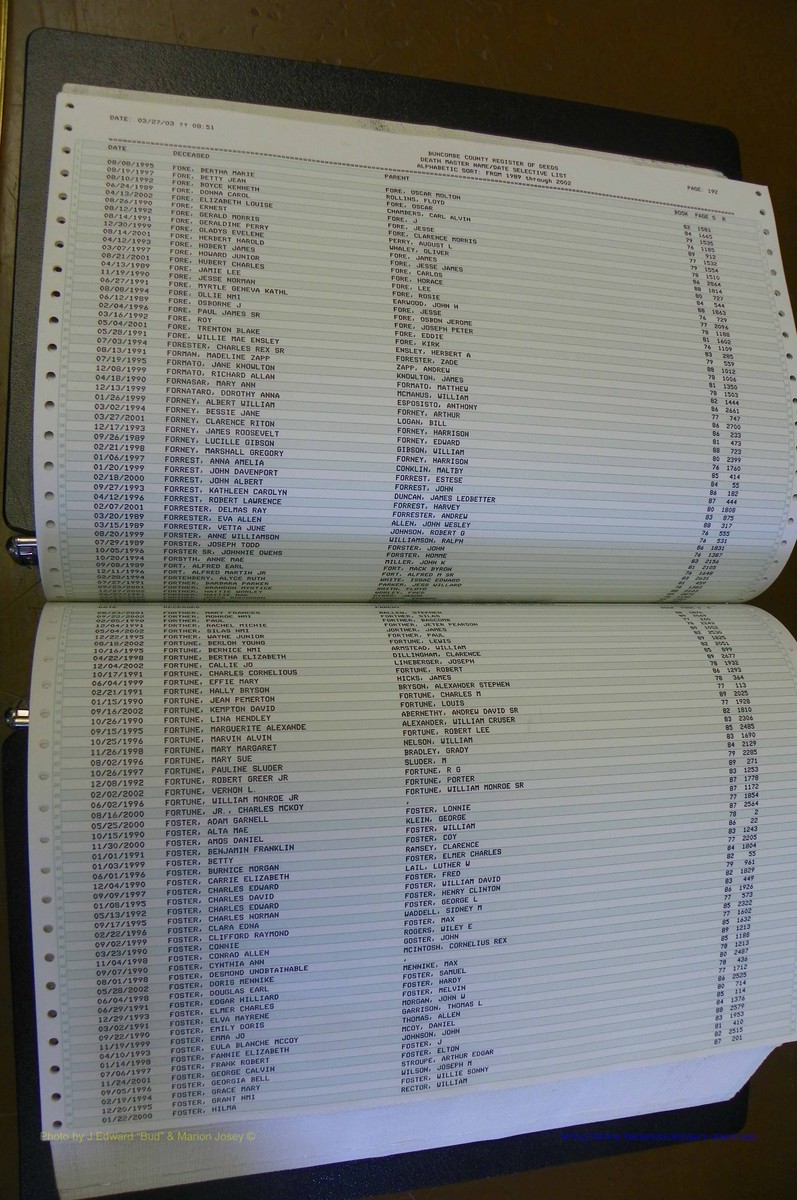 DATE: 03/27/03 ?? 08:51
BUNCOMBE COUNTY REGISTER OF DEEDS
DEATH MASTER NAME/DATE SELECTIVE LIST
ALPHABETIC SORT: FROM 1989 through 2002
PAGE: 192
DATE DECEASED PARENT BOOK PAGE S R
08/08/1995 FORE, BERTHA MARIE FORE, OSCAR MOLTON 82 1581
08/19/1997 FORE, BETTY JEAN ROLLINS, FLOYD 84 1665
08/10/1992 FORE, BOYCE KENNETH FORE, OSCAR 79 1535
06/24/1989 FORE, DONNA CAROL CHAMBERS, CARL ALVIN 76 1185
04/13/2002 FORE, ELIZABETH LOUISE FORE, J 89 912
08/26/1990 FORE, ERNEST FORE, JESSE 77 1532
08/12/1992 FORE, GERALD MORRIS FORE, CLARENCE MORRIS 79 1554
08/14/1991 FORE, GERALDINE PERRY PERRY, AUGUST L 78 1510
12/30/1999 FORE, GLADYS EVELENE WHALEY, OLIVER 86 2864
08/14/2001 FORE, HERBERT HAROLD FORE, JAMES 88 1814
04/12/1993 FORE, HOBERT JAMES FORE, JESSE JAMES 80 727
03/07/1997 FORE, HOWARD JUNIOR FORE, CARLOS 84 544
08/21/2001 FORE, HUBERT CHARLES FORE, HORACE 88 1863
04/13/1989 FORE, JAMIE LEE FORE, LEE 76 729
11/19/1990 FORE, JESSE NORMAN FORE, ROSIE 77 2096
06/27/1991 FORE, MYRTLE GENEVA KATHL EARWOOD, JOHN H 78 1188
08/08/1994 FORE, OLLIE NMI FORE, JESSE 81 1602
06/12/1989 FORE, OSBORNE J FORE, OSBON JEROME 76 1109
02/04/1996 FORE, PAUL JAMES SR FORE, JOSEPH PETER 83 285
03/16/1992 FORE, ROY FORE, EDDIE 79 559
05/04/2001 FORE, TRENTON BLAKE FORE, KIRK 88 1012
05/28/1991 FORE, WILLIE MAE ENSLEY ENSLEY, HERBERT A 78 1006
07/03/1994 FORESTER, CHARLES REX SR FORESTER, ZADE 81 1350
08/13/1991 FORMAN, MADELINE ZAPP ZAPP, ANDREW 78 1503
07/19/1995 FORMATO, JANE KNOWLTON KNOWLTON, JAMES 82 1444
12/08/1999 FORMATO, RICHARD ALLAN FORMATO, MATTHEW 86 2661
04/18/1990 FORNASAR, MARY ANN MCMANUS, WILLIAM 77 747
12/13/1999 FORNATARO, DOROTHY ANNA ESPOSISTO, ANTHONY 86 2700
01/26/1999 FORNEY, ALBERT WILLIAM FORNEY, ARTHUR 86 233
03/02/1994 FORNEY, BESSIE JANE LOGAN, BILL 81 473
03/27/2001 FORNEY, CLARENCE RITON FORNEY, HARRISON 88 723
12/17/1993 FORNEY, JAMES ROOSEVELT FORNEY, EDWARD 80 2399
09/26/1989 FORNEY, LUCILLE GIBSON GIBSON, WILLIAM 76 1760
02/21/1998 FORNEY, MARSHALL GREGORY FORNEY, HARRISON 85 414
01/06/1997 FORREST, ANNA AMELIA CONKLIN, MALTBY 84 55
01/20/1999 FORREST, JOHN DAVENPORT FORREST, ESTESE 86 182
02/18/2000 FORREST, JOHN ALBERT FORREST, JOHN 87 444
09/27/1993 FORREST, KATHLEEN CAROLYN DUNCAN, JAMES LEDBETTER 80 1808
04/12/1996 FORREST, ROBERT LAWRENCE FORREST, HARVEY 83 875
02/07/2001 FORRESTER, DELMAS RAY FORRESTER, ANDREW 88 317
03/20/1989 FORRESTER, EVA ALLEN ALLEN, JOHN WESLEY 76 555
03/15/1989 FORRESTER, VETTA JUNE JOHNSON, ROBERT G 76 531
08/20/1999 FORSTER, ANNE WILLIAMSON WILLIAMSON, RALPH 86 1831
07/29/1989 FORSTER, JOSEPH TODD FORSTER, JOHN 76 1387
10/05/1996 FORSTER SR, JOHNNIE OWENS FORSTER, HOMME 83 2156
10/20/1994 FORSYTH, ANNE MAE MILLER, JOHN K 81 2103
09/08/1989 FORT, ALFRED EARL FORT, MACK BYRON 76 1648
12/11/1996 FORT, ALFRED MARTIN JR FORT, ALFRED M SR 83 2631
02/28/1994 FORTENBERY, ALYCE RUTH WHITE, ISSAC EDWARD 81 459
FORTNER, BARBARA PARKER PARKER, JESS WILLARD
08/23/2001 FORTHER, MARY FRANCES STEPHEN
09/22/2000 FORTHER, MONROE NMI FORTHER, SILAS
02/05/1990 FORTHER, PAUL FORTHER, BASCOMB
12/04/1991 FORTHER, RACHEL MICHIE FORTHER, JETER PEARSON
05/04/2002 FORTHER, SILAS NMI JAMES
12/22/1995 FORTHER, WAYNE JUNIOR FORTHER, PAUL
08/18/2002 FORTUNE, BERLON YOUNG FORTUNE, LEWIS 1825
10/16/1995 FORTUNE, BERNICE NMI ARMSTEAD, WILLIAM 82 2051
04/22/1998 FORTUNE, BERTHA ELIZABETH DILLINGHAM, CLARENCE 85 899
12/04/2002 FORTUNE, CALLIE JO LINEBERGER, JOSEPH 89 2677
10/17/1991 FORTUNE, CHARLES CORNELIOUS FORTUNE, ROBERT 78 1932
06/04/1999 FORTUNE, EFFIE MARY HICKS, JAMES 86 1293
02/21/1991 FORTUNE, HALLY BRYSON BRYSON, ALEXANDER STEPHEN 78 364
01/15/1990 FORTUNE, JEAN PEMERTON FORTUNE, CHARLES M 77 113
09/16/2002 FORTUNE, KEMPTON DAVID FORTUNE, LOUIS 89 2025
10/26/1990 FORTUNE, LINA HENDLEY ABERNETHY, ANDREW DAVID SR 77 1928
09/15/1995 FORTUNE, MARGUERITE ALEXANDE ALEXANDER, WILLIAM CRUSER 82 1810
10/25/1996 FORTUNE, MARVIN ALVIN FORTUNE, ROBERT LEE 83 2306
11/26/1998 FORTUNE, MARY MARGARET NELSON, WILLIAM 85 2485
08/02/1996 FORTUNE, MARY SUE BRADLEY, GRADY 83 1690
10/26/1997 FORTUNE, PAULINE SLUDER SLUDER, M 84 2129
12/08/1992 FORTUNE, ROBERT GREER JR FORTUNE, R G 79 2285
02/02/2002 FORTUNE, VERNON L. FORTUNE, PORTER 89 271
06/02/1996 FORTUNE, WILLIAM MONROE JR FORTUNE, WILLIAM MONROE SR 83 1253
08/16/2000 FORTUNE, JR., CHARLES MCKOY , 87 1778
05/25/2000 FOSTER, ADAM GARNELL FOSTER, LONNIE 87 1172
10/15/1990 FOSTER, ALTA MAE KLEIN, GEORGE 77 1854
11/30/2000 FOSTER, AMOS DANIEL FOSTER, WILLIAM 87 2564
01/01/1991 FOSTER, BENJAMIN FRANKLIN FOSTER, COY 78 2
01/03/1999 FOSTER, BETTY RAMSEY, CLARENCE 86 22
06/01/1996 FOSTER, BURNICE MORGAN FOSTER, ELMER CHARLES 83 1243
12/04/1990 FOSTER, CARRIE ELIZABETH LAIL, LUTHER W 77 2205
09/09/1997 FOSTER, CHARLES EDWARD FOSTER, FRED 84 1804
01/08/1995 FOSTER, CHARLES DAVID FOSTER, WILLIAM DAVID 82 55
05/13/1992 FOSTER, CHARLES EDWARD FOSTER, HENRY CLINTON 79 961
09/17/1995 FOSTER, CHARLES NORMAN FOSTER, GEORGE L 82 1829
02/22/1996 FOSTER, CLARA EDNA WADDELL, SIDNEY M 83 449
09/02/1999 FOSTER, CLIFFORD RAYMOND FOSTER, MAX 86 1926
03/23/1990 FOSTER, CONNIE ROGERS, WILEY E 77 573
11/04/1998 FOSTER, CONRAD ALLEN GOSTER, JOHN 85 2322
09/07/1990 FOSTER, CYNTHIA ANN MCINTOSH, CORNELIUS REX 77 1602
08/01/1998 FOSTER, DESMOND UNOBTAINABLE , 85 1632
05/28/2002 FOSTER, DORIS MEHNIKE MEHNIKE, MAX 89 1213
06/04/1998 FOSTER, DOUGLAS EARL FOSTER, SAMUEL 85 1188
06/29/1991 FOSTER, EDGAR HILLIARD FOSTER, HARDY 78 1213
12/29/1993 FOSTER, ELMER CHARLES FOSTER, MELVIN 80 2487
03/02/1991 FOSTER, ELVA MAYRENE MORGAN, JOHN W 78 436
09/22/1990 FOSTER, EMILY DORIS GARRISON, THOMAS L 77 1712
11/19/1999 FOSTER, EMMA JO THOMAS, ALLEN 86 2525
04/10/1993 FOSTER, EULA BLANCHE MCCOY MCOY, DANIEL 80 714
01/14/1998 FOSTER, FANNIE ELIZABETH JOHNSON, JOHN 85 114
07/06/1997 FOSTER, FRANK ROBERT FOSTER, J 84 1376
11/24/2001 FOSTER, GEORGE CALVIN FOSTER, ELTON 88 2579
09/05/1996 FOSTER, GEORGIA BELL STROUPE, ARTHUR EDGAR 83 1953
02/19/1994 FOSTER, GRACE MARY WILSON, JOSEPH M 81 410
12/20/1995 FOSTER, GRANT NMI FOSTER, WILLIE SONNY 82 2515
01/22/2000 FOSTER, HILMA RECTOR, WILLIAM 87 201
Photo by J Edward "Bud" & Marion Josey ©